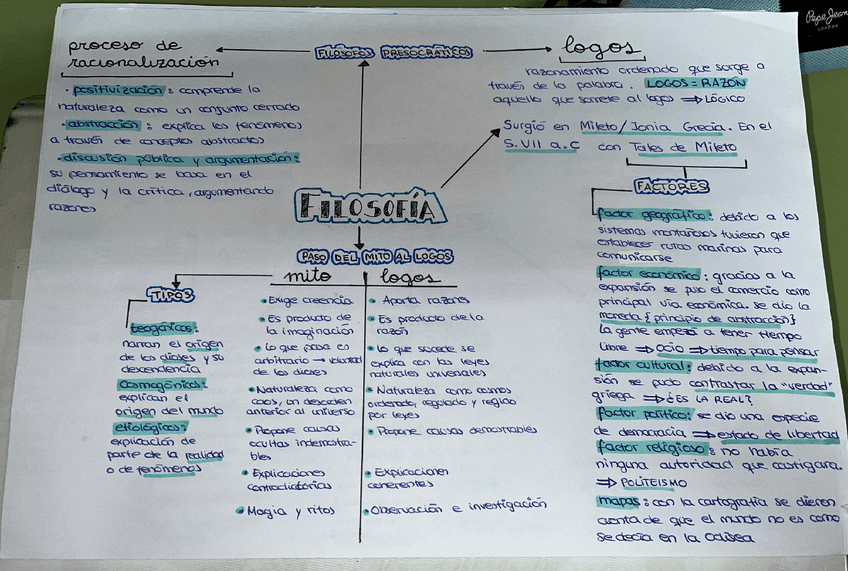 Pepe Jeans
LONDON
FILÓSOFOS PRESOCRÁTICOS
proceso de
racionalización
· positivización: comprende la
naturaleza como un conjunto cerrado
· abstracción: explica los fenómenos
a través de conceptos abstractos
· discusión pública y argumentación:
su pensamiento se basa en el
diálogo y la crítica, argumentando
razones
logos
razonamiento ordenado que surge a
través de la palabra. LOGOS = RAZÓN
aquello que somete al logos ⇒ LÓGICO
Surgió en Mileto/Jonia Grecia. En el
S.VII a.C con Tales de Mileto
FACTORES
factor geográfico: debido a los
sistemas montañosos tuvieron que
establecer rutas marinas para
comunicarse
factor económico: gracias a la
expansión se puso el comercio como
principal vía económica. se dio la
moneda {principio de abstracción}
la gente empezó a tener tiempo
libre ⇒ ocio ⇒ tiempo para pensar
factor cultural: debido a la expan-
sión se pudo contrastar la "verdad"
griega ⇒ ¿ES LA REAL?
factor político: se dio una especie
de democracia ⇒ estado de libertad
factor religioso: no había
ninguna autoridad que castigara.
⇒ POLITEISMO
mapas: con la cartografía se dieron
cuenta de que el mundo no es como
se decía en la Odisea
FILOSOFÍA
PASO DEL MITO AL LOGOS
mito
• Exige creencia
• Es producto de
la imaginación
• Lo que pasa es
arbitrario → voluntad
de los dioses
• Naturaleza como
caos, un desorden
anterior al universo
• Propone causas
ocultas indemostra-
bles
• Explicaciones
contradictorias
• Magia y ritos
logos
• Aporta razones
• Es producto de la
razón
• lo que sucede se
explica con las leyes
naturales universales
• Naturaleza como cosmos
ordenado, regulado y regido
por leyes
• Propone causas demostrables
• Expiraciones
coherentes
• Observación e investigación
TIPOS
teogónicos:
narran el origen
de los dioses y su
descendencia
cosmogónicos:
explican el
origen del mundo
etiológicos:
explicación de
parte de la realidad
o de fenómenos